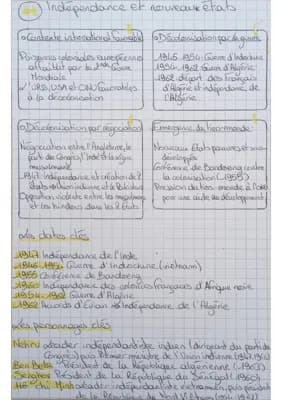 Indépendance et nouveaux états
Contexte international favorable
Puissances coloniales européennes
affaiblit par la 2nde Guerre
Mondiale
URSS, USA et ONU favorables
à la décolonisation
Décolonisation par la guerre
1945-1954: Guerre d'Indochine
1954-1962: Guerre d'Algérie
1962 départ des Français
d'Algérie et indépendance de
l'Algérie.
Décolonisation par négociation
Négociation entre l'Angleterre, le
parti du Congrès, l'Inde et la ligue
musulmane
1947: Indépendance et création de 2
états : Union indienne et le Pakistan
Opposition violente entre les musulmans
et les hindous dans les 2 États
Émergence du tiers-monde:
Nouveaux États pauvres et sous-
développés
Conférence de Bandoeng contre
la colonisation (1955)
Pression du tiers-monde à l'ONU
pour une aide au développement
Les dates clés
1947 Indépendance de l'Inde
1945-1954 Guerre d'Indochine (vietnam)
1955 Conférence de Bandoeng
1960 Indépendance des colonies françaises d'Afrique noire
1954-1962 Guerre d'Algérie
1962 Accords d'Évian Indépendance de l'Algérie
Les personnages clés
Nehru leader indépendantiste indien (dirigeant du parti du
Congrès) puis Premier ministre de l'Union indienne (1947-1964)
Ben Bella Président de la République algérienne (1963)
Senghor Président de la République du Sénégal (1960)
Hô Chi Minh leader indépendantiste vietnamien, puis président
de la République du Nord